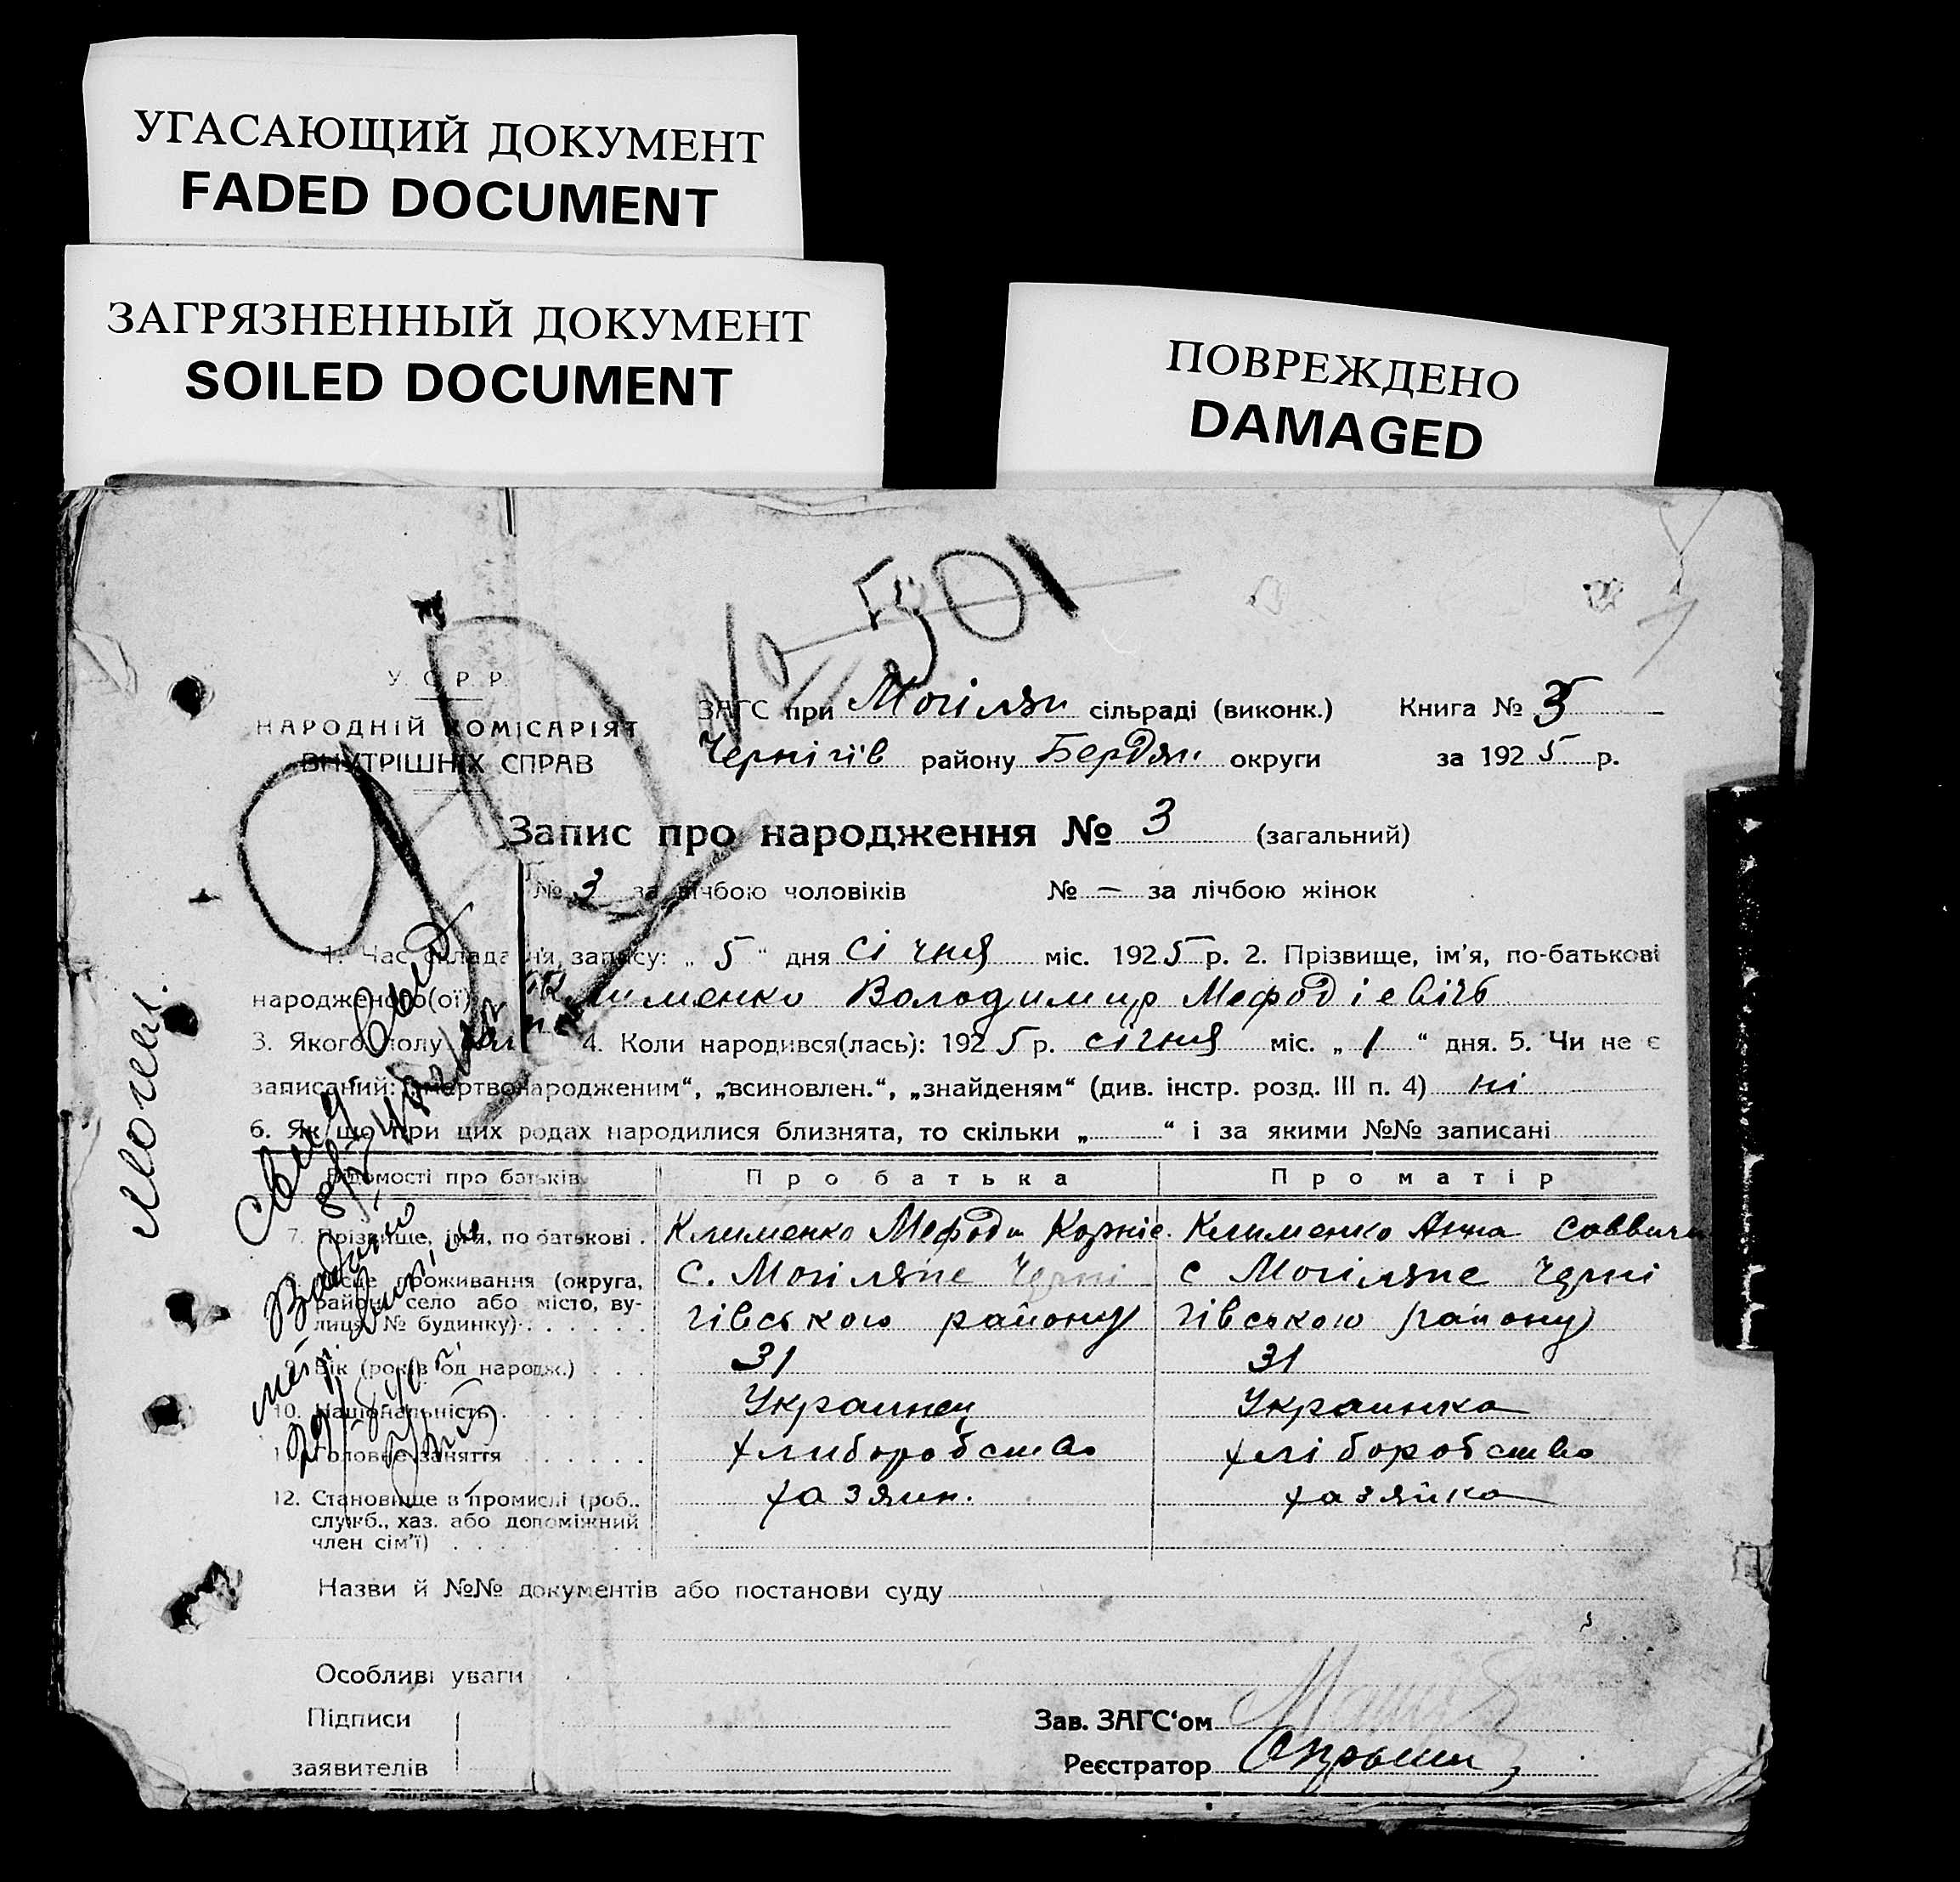 УГАСАЮЩИЙ ДОКУМЕНТ
FADED DOCUMENT
ЗАГРЯЗНЕННЫЙ ДОКУМЕНТ
SOILED DOCUMENT
ПОВРЕЖДЕНО
DAMAGED
№ 501
У. С. Р. Р.
НАРОДНІЙ КОМІСАРІЯТ
ВНУТРІШНІХ СПРАВ
ЗАГС при Могілян сільраді (виконк.) Книга № 3
Чернігів району Бердян округи за 1925 р.
Запис про народження № 3 (загальний)
№ 3 за лічбою чоловіків № — за лічбою жінок
1. Час складання запису: „ 5 “ дня січня міс. 1925 р. 2. Прізвище, ім'я, по-батькові
народженого(ої) Клименко Володимир Мефодіевічь
3. Якого полу 4. Коли народився(лась): 1925 р. січня міс. „ 1 “ дня. 5. Чи не є
записаний: „мертвонародженим“, „всиновлен.“, „знайденям“ (див. інстр. розд. III п. 4) ні
6. Як що при цих родах народилися близнята, то скільки „ “ і за якими №№ записані
Відомості про батьків Про батька Про матір
7. Прізвище, ім'я, по батькові . Клименко Мефоди Корніе. Клименко Анна Саввичн
8. Місце проживання (округа, с. Могіляне Черні с Могіляне Черні
район, село або місто, ву-
лиця, № будинку) . . . . . . гівського району гівського району
9. Вік (років од народж.) . . . 31 31
10. Національність . . . . . . Украинец Украинка
11. Головне заняття . . . . . . хлиборобство хліборобство
12. Становище в промислі (роб., хазяин. хазяйка
служб., хаз. або допоміжний
член сім'ї) . . . . . .
Назви й №№ документів або постанови суду
Особливі уваги
Підписи
заявителів
Зав. ЗАГС'ом
Реєстратор
Могел.
Видано